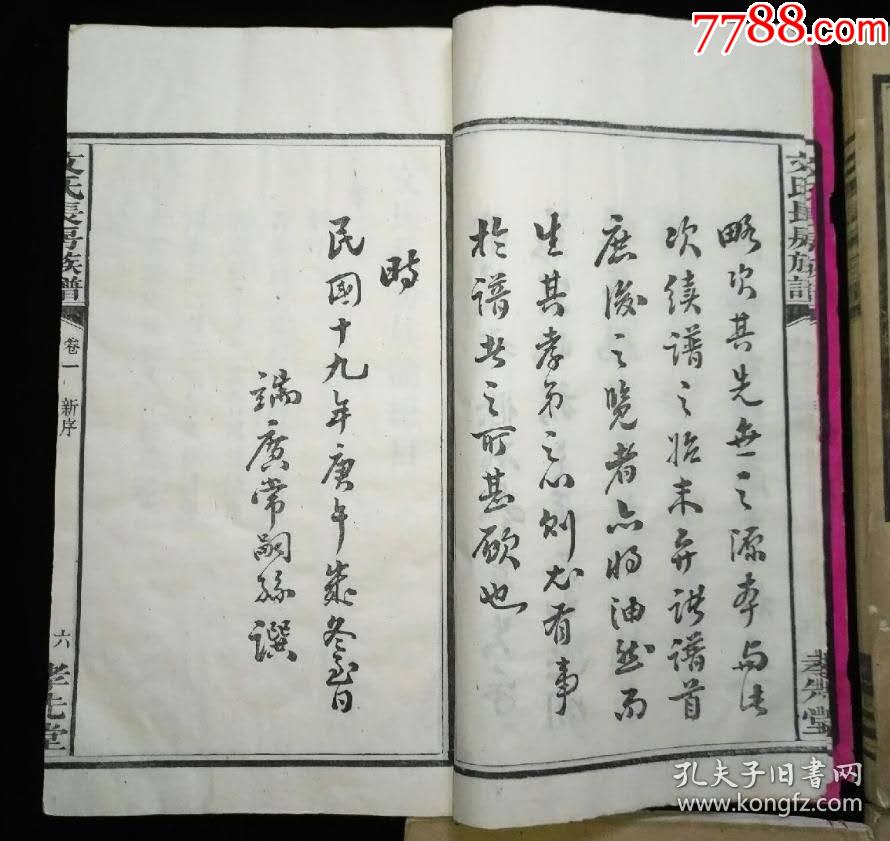 7788.com
文氏長房族譜
孝先堂
略次其先世之源本与此
次续谱之始末弁諸谱首
庶後之览者亦将油然而
生其孝弟之心则尤有事
於谱者之所甚願也
時
民國十九年庚午歲冬至日
端廣常嗣孫譔
文氏長房族譜
卷一
新序
六
孝先堂
孔夫子旧書网
www.kongfz.com